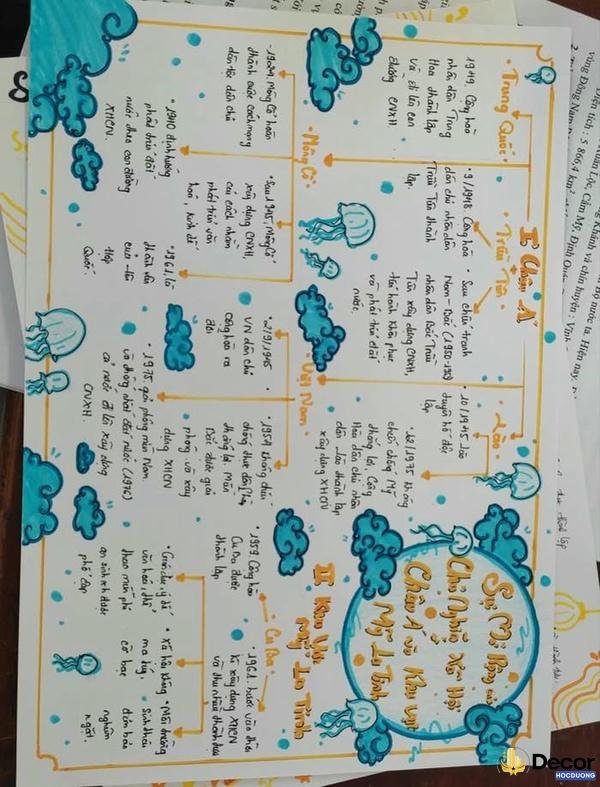 Sự Mở Rộng của
Chủ Nghĩa Xã Hội
Châu Á và Khu vực
Mỹ La Tinh
I. Châu Á
Trung Quốc
1949. Cộng hoà
nhân dân Trung
Hoa thành lập
và đi lên con
đường CNXH.
Triều Tiên
9/1948. Cộng hoà
dân chủ nhân dân
Triều Tiên thành
lập.
Sau chiến tranh
Nam - Bắc (1950-1953
nhân dân Bắc Triều
Tiên xây dựng CNXH,
tiến hành khôi phục
và phát triển đất
nước.
Lào
10/1945 Lào
tuyên bố độc
lập
12/1975 kháng
chiến chống Mỹ
thắng lợi, Cộng
Hòa dân chủ nhân
dân Lào thành lập
xây dựng XHCN
Mông Cổ
1924, Mông Cổ hoàn
thành cuộc cách mạng
dân tộc dân chủ
1940 định hướng
phát triển đất
nước theo con đường
XHCN.
Sau 1945, Mông Cổ
xây dựng CNXH,
cải cách nhằm
phát triển văn
hoá, kinh tế
1961. là
thành viên
của Liên
Hợp
Quốc.
Việt Nam
2/9/1945
VN dân chủ
cộng hoà ra
đời
1954 kháng chiến
chống thực dân Pháp
thắng lợi. Miền
Bắc được giải
phóng và xây
dựng XHCN
1975 giải phóng miền Nam,
và thống nhất đất nước (1976)
cả nước đi lên xây dựng
CNXH.
II. Khu vực
Mỹ La Tinh
Cu Ba
1959. Cộng hoà
Cu Ba được
thành lập
1961. bước vào thời
kì xây dựng XHCN
và thu nhiều thành tựu
Giáo dục, y tế
văn hoá, thể
thao miễn phí
an sinh xh được
phổ cập
Xã hội không
ma túy,
cờ bạc
Môi trường
sinh thái
đảm bảo
nghiêm
ngặt.
Diện tích : 5 866,4 km²
Decor
HOCDUONG